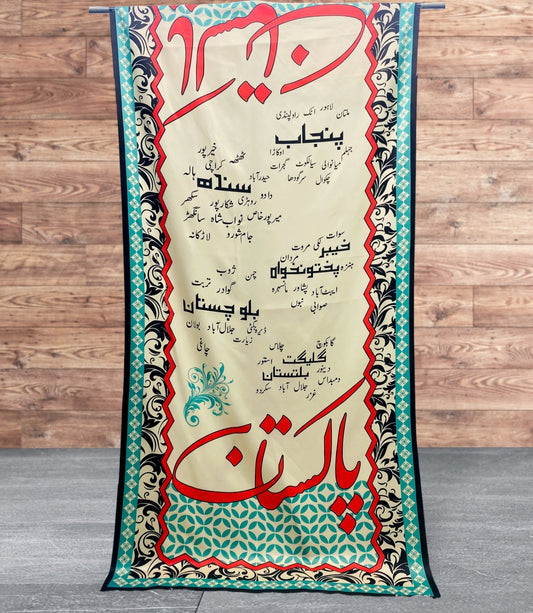 لاہور اٹک راولپنڈی
ملتان
پنجاب
جہلم میانوالی سیالکوٹ گجرات
اوکاڑا
چکوال سرگودھا
خیرپور
ٹھٹھہ کراچی
ہالہ
حیدرآباد
سندھ
دادو
روہڑی شکارپور سکھر
میرپور خاص نواب شاہ سانگھڑ
جام شورو لاڑکانہ
سوات
لکی مروت
خیبر
مردان
پختونخواہ
ہنزہ
ایبٹ آباد پشاور مانسہرہ
صوابی بنوں
ژوب
چمن
گوادر تربت
بلوچستان
ڈیرہ بگٹی جلال آباد بولان
زیارت
چاغی
گاہکوچ
چلاس
گلگت
استور
دینور
بلتستان
دمبداس
جلال آباد سکردو
غزر
پاکستان